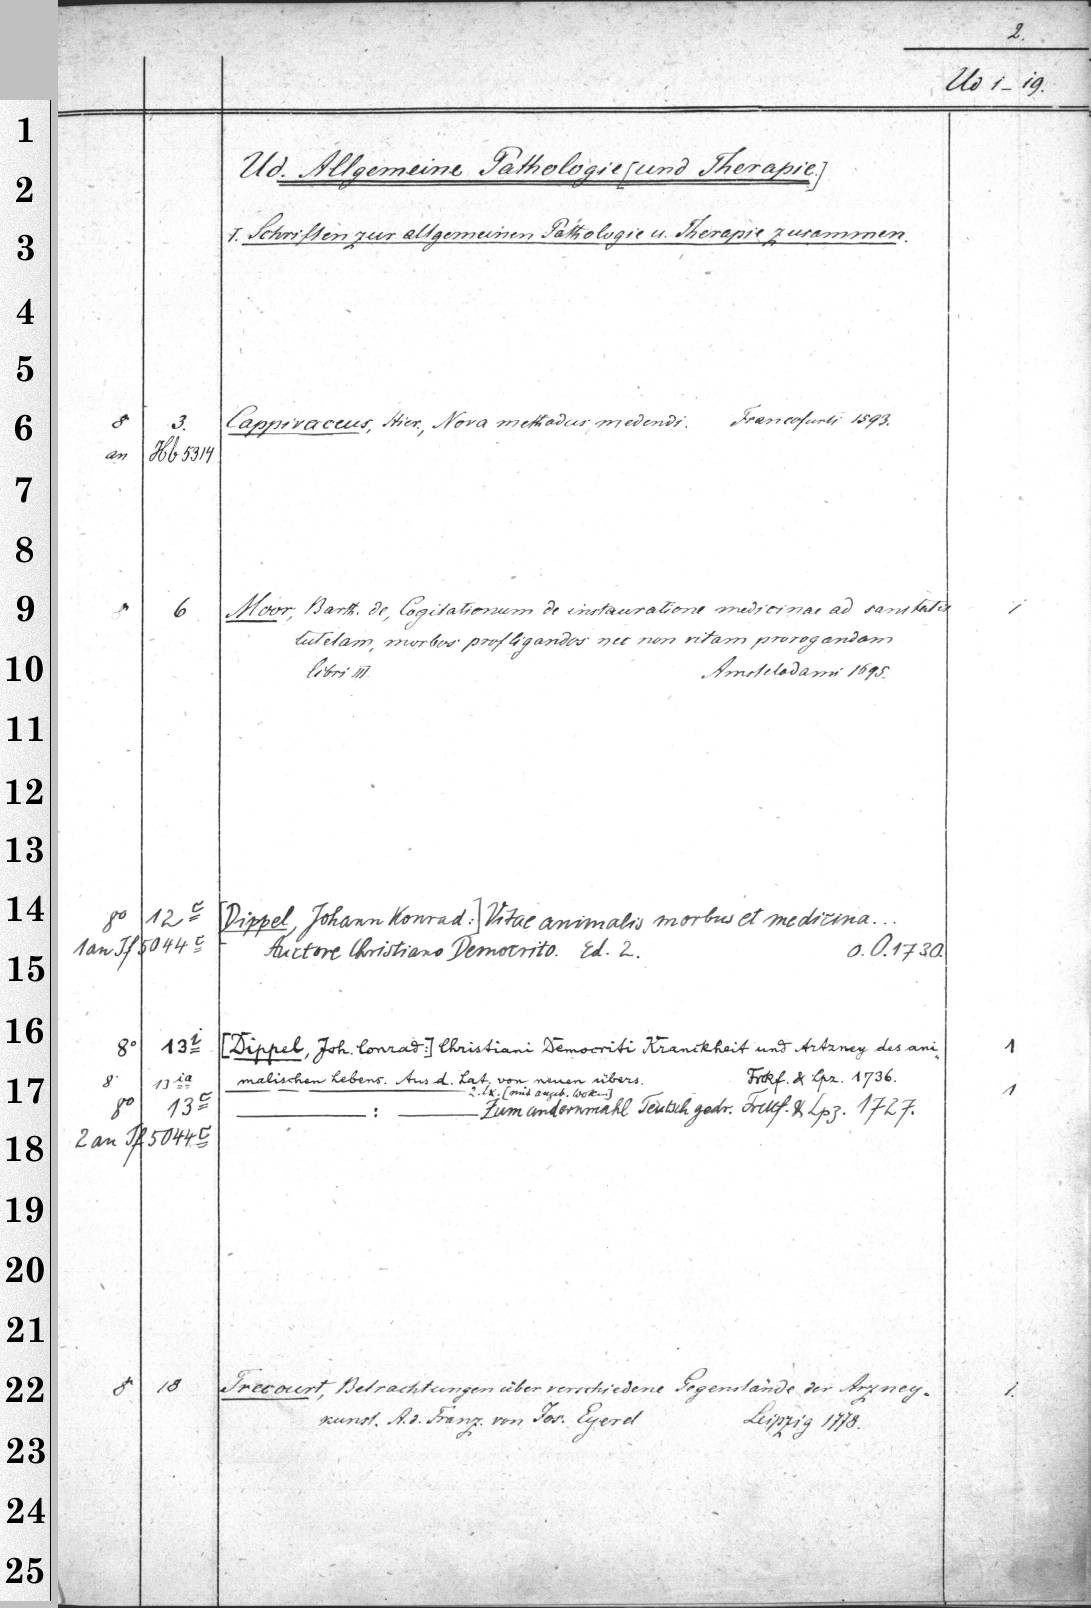 2.
Ud 1–19.
1
2
Ud. Allgemeine Pathologie [und Therapie.]
3
I. Schriften zur allgemeinen Pathologie u. Therapie zusammen.
4
5
6
8 3. Cappivaceus, Hier., Nova methodus medendi. Francofurti 1593.
an Hb 5314
7
8
9
8 6 Moor, Barth. de, Cogitationum de instauratione medicinae ad sanitatis 1
tutelam, morbos profligandos nec non vitam prorogandam
10
libri III. Amstelodami 1695.
11
12
13
14
8° 12 c [Dippel, Johann Konrad:] Vitae animalis morbus et medicina...
1 an Jf 5044 c Auctore Christiano Democrito. Ed. 2. o.O. 1730.
15
16
8° 13 i [Dippel, Joh. Conrad:] Christiani Democriti Kranckheit und Artzney des ani- 1
17
8° 13 ia malischen Lebens. Aus d. Lat. von neuen übers. Frkf. & Lpz. 1736. 1
2. Ex. [mit angeb.
8° 13 c — : — Zum andernmahl Teutsch gedr. Frkf. & Lpz. 1727.
18
2 an Jf 5044 c
19
20
21
22
8 18 Trecourt, Betrachtungen über verschiedene Gegenstände der Arzney- 1.
kunst. A. d. Franz. von Jos. Eyerel Leipzig 1778.
23
24
25